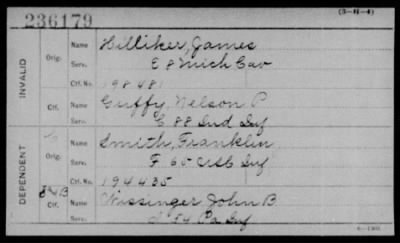 236179
(3-H-4)
INVALID
Orig.
Name Hilliker, James
Serv. E 8 Mich Cav
Ctf. No. 198481
Ctf.
Name Guffy, Nelson P
Serv. C 88 Ind Inf
DEPENDENT
Orig.
Name Smith, Franklin
Serv. F 60 Inf
Ctf. No. 194435
Ctf.
Name Nissinger John B
Serv. 54 Pa Inf